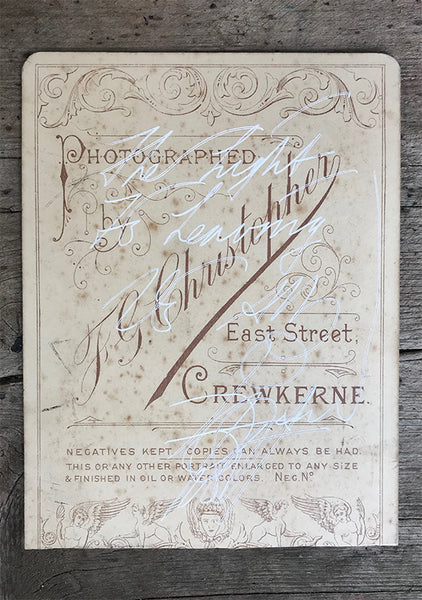 PHOTOGRAPHED
By
T. G. Christopher
East Street,
CREWKERNE.
NEGATIVES KEPT. COPIES CAN ALWAYS BE HAD.
THIS OR ANY OTHER PORTRAIT ENLARGED TO ANY SIZE
& FINISHED IN OIL OR WATER COLORS. NEG. No
The Light
Is Leaving
Us